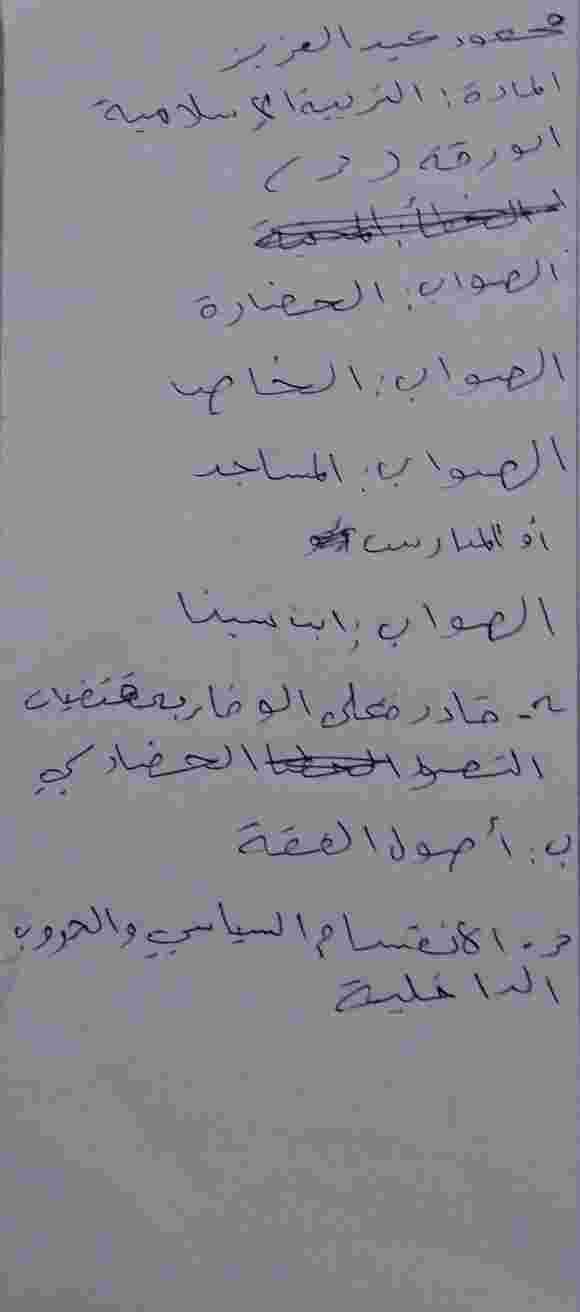 محمود عبد العزيز
المادة: التربية الإسلامية
الورقة (2)
الصواب: الحضارة
الصواب: الخاص
الصواب: المساجد
أو المدارس
الصواب: ابن سينا
قادر على الوفاء بمقتضيات
التصور الحضاري
ب: أصول الفقة
الانقسام السياسي والحروب
الداخلية